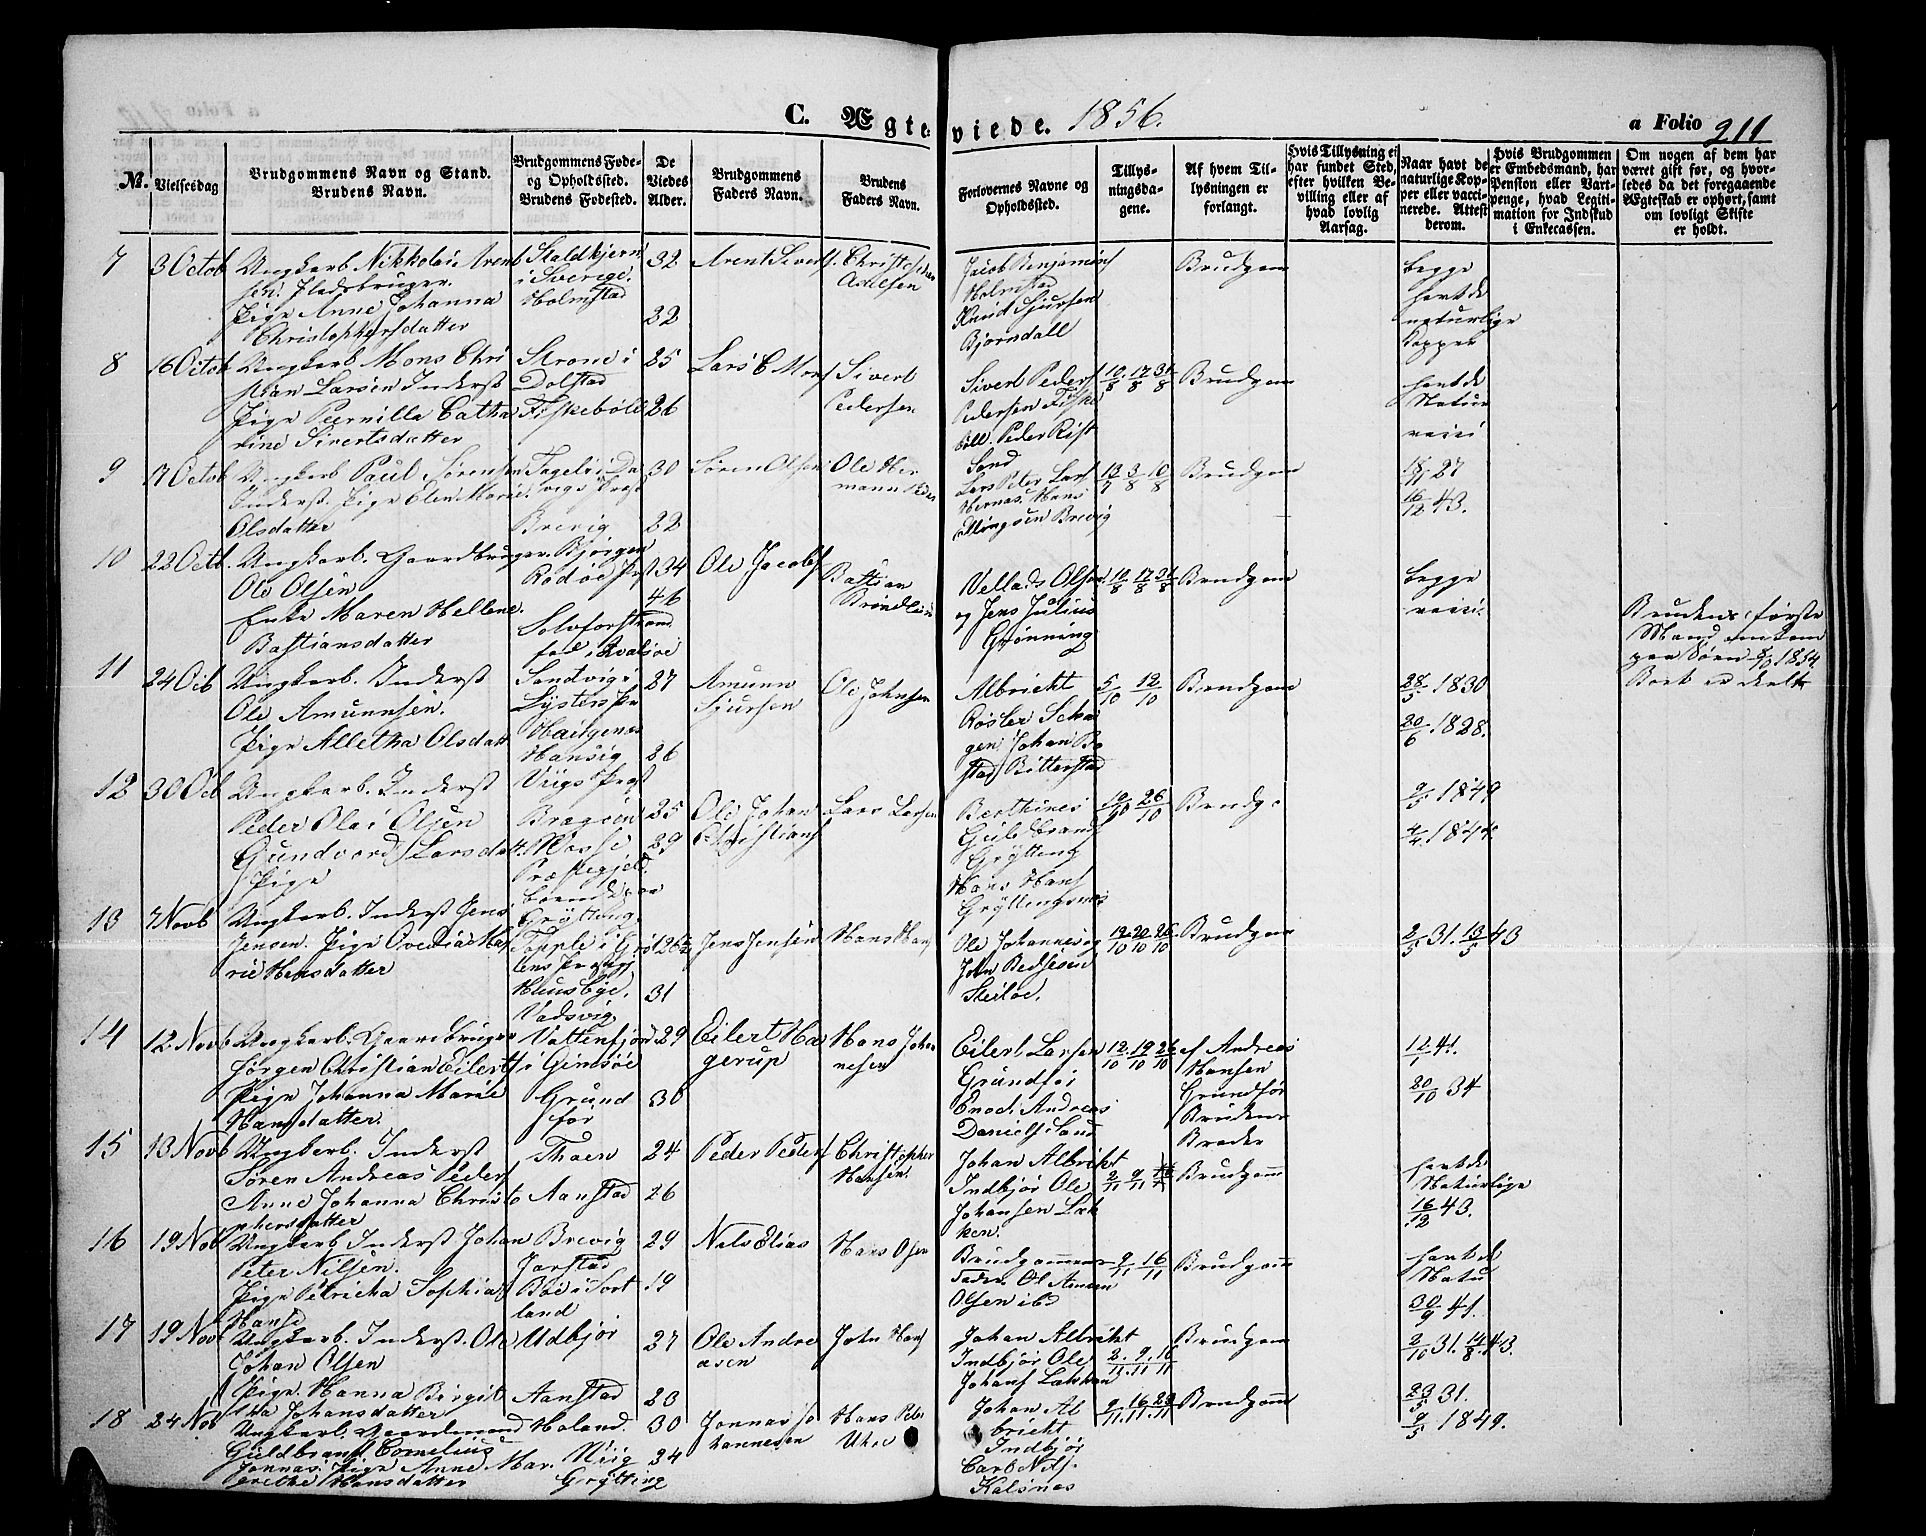 C. Ægteviede. 1856. a Folio 211
No.
Vielsesdag
Brudgommens Navn og Stand.
Brudens Navn.
Brudgommens Føde-
og Opholdssted.
Brudens Fødested.
De
Viedes
Alder.
Brudgommens
Faders Navn.
Brudens
Faders Navn.
Forlovernes Navne og
Opholdssted.
Tillys-
ningsda-
gene.
Af hvem Til-
lysningen er
forlangt.
Hvis Tillysning ei
har fundet Sted,
efter hvilken Be-
villing eller af
hvad lovlig
Aarsag.
Naar havt de
naturlige Kop-
per eller vacci-
nerede. Attest
derom.
Hvis Brudgommen
er Embedsmand, har
Pension eller Vart-
penge, hvad Legiti-
mation for Indskud
i Enkecassen.
Om nogen af dem har
været gift før, og hvor-
ledes da det foregaaende
Ægteskab er ophørt, samt
om lovligt Skifte
er holdt.
7 3 Octob Ungkarb Nikkolai Arent
sen. Pladsbruger.
Pige Anne Johanna
Christophersdatter
i Sverige.
Holmstad
32
32
Arent Sivers
Axelsen
Jacob Benjamins
Holmstad
Knud Sjursen
Bjørndall
Brudgom
begge
havt de
naturlige
Kopper
8 16 Octob Ungkarb Mons Chri
stian Larsen Inderst
Pige Pernilla Catha
rine Sivertsdatter
Dolstad
Fiskebøll
25
26
Lars C Mons
Sivert
Pedersen
Sivert Peders
Pedersen Fiske
bøll. Peder Rist
Sand
10/8 17/8 31/8
Brudgom
havt de
Natur
vacci
9 17 Octob Ungkarb Paul Sørensen
Inderst. Pige Elen Marie
Olsdatter
Brevig
30
22
Søren Olsen
Ole Her
mann
Lars Peter Lars
Hernæs. Hans
Ellingsen Brevig
13/7 3/8 10/8
Brudgom
27
16/12 43.
10 22 Octb. Ungkarb. Gaardbruger
Ole Olsen
Enke Maren Hellene
Bastiansdatter
Bjørgen
Rødøe Præst
34
46
Ole Jacobs
Bastian
Brøndlund
Vellads Olsen
og Jens Julius
Grønning
10/8 17/8 31/8
Brudgom
begge
vacci.
Brudens første
Mand omkom
paa Søen 1854.
Boet er deelt
11 24 Octb Ungkarb. Inderst
Ole Amunnsen.
Pige Alletha Olsdatt
Sandvig i
Lysters Pr
Hansig
27
26
Amunn
Sjursen
Ole Johnsen
Albricht
Røsler Ska
gen Johan Bo
stad Bitterstad
5/10 12/10
Brudgom
28/5 1830
20/6 1828.
12 30 Octb Ungkarb. Inderst
Peder Olai Olsen
Gundvord Larsdatt.
Pige
Viigs Præst
Bragsen
Præstegjeld.
Grytting
25
29
Ole Johan
Christians
Lars Larsen
Berthines
Guldbrand
Grytting
Hans Hans
Gryttingsnes
19/10 26/10
Brudg.
9/5 1849
4/4 1844.
13 7 Novb Ungkarb. Inderst Jens
Jensen. Pige Ovedia Ma
rie Hansdatter
Huusbye.
Vadsvig
26½
31
Jens Jensen
Hans Hans
Ole Johannes og
John Bedsesen
Steiloe.
12/10 20/10 26/10
Brudgom
2/5 31. 13/5 43
14 12. Novb Ungkarb. Gaardbruger
Jørgen Christian Eilerts
Pige Johanna Marie
Hansdatter.
Vattenfjord
i Gimsøe
Grund
før
29
30
Eilert Ha
gerup
Hans Johan
nesen
Eilert Larsen
Grundfør
Enoch Andreas
Daniels Sand
12/10 19/10 26/10
af Andreas
Hansen
Grundfør
Brudens
Broder
12/1 41.
20/10 34
15 13 Novb Ungkarb. Inderst
Søren Andreas Peders
Anne Johanna Christo
phersdatter
Thoen
Aanstad
24
26
Peder Peders
Christopher
Hansen.
Johan Albrikt
Indbjør Ole
Johansen Lak
ken.
2/11 9/11
Brudgom
havt de
Naturlige
16/12 43.
16 19 Nov Ungkarb Inderst Johan
Peter Nilsen.
Pige Petricha Sophia
Hansd
Brevig
Jarstad
Bøe i Sort
land
29
19
Nils Elias
Hans Olsen
Brudgommens
Fader Ol Amun
Olsen ibd
9/11 16/11
Brudgom
havt de
Natu
30/9 41.
17 19 Novb Ungkarb. Inderst. Ole
Johan Olsen
Pige. Hanna Birgit
tha Johansdatter
Udbjør
Aanstad
27
23
Ole Andre
asen
John Hans
Johan Albrikt
Indbjør Ole
Johans Lakken
2/11. 9/11. 16/11
Brudgom
2/10 31. 14/8. 43.
23/5 31.
18 24 Nov Ungkarb. Gaardmand
Guldbrand Cornelius
Jonnas. Pige Anne Mar
grethe Hansdatter
Holand.
Grytting
30
34
Jonnas Jo
hannesen
Hans Peter
Uhre
Johan Al
bricht
Indbjør
Carl Nils.
Kalsnes
9/11. 16/11. 23/11
Brudgom
9/5 1849.